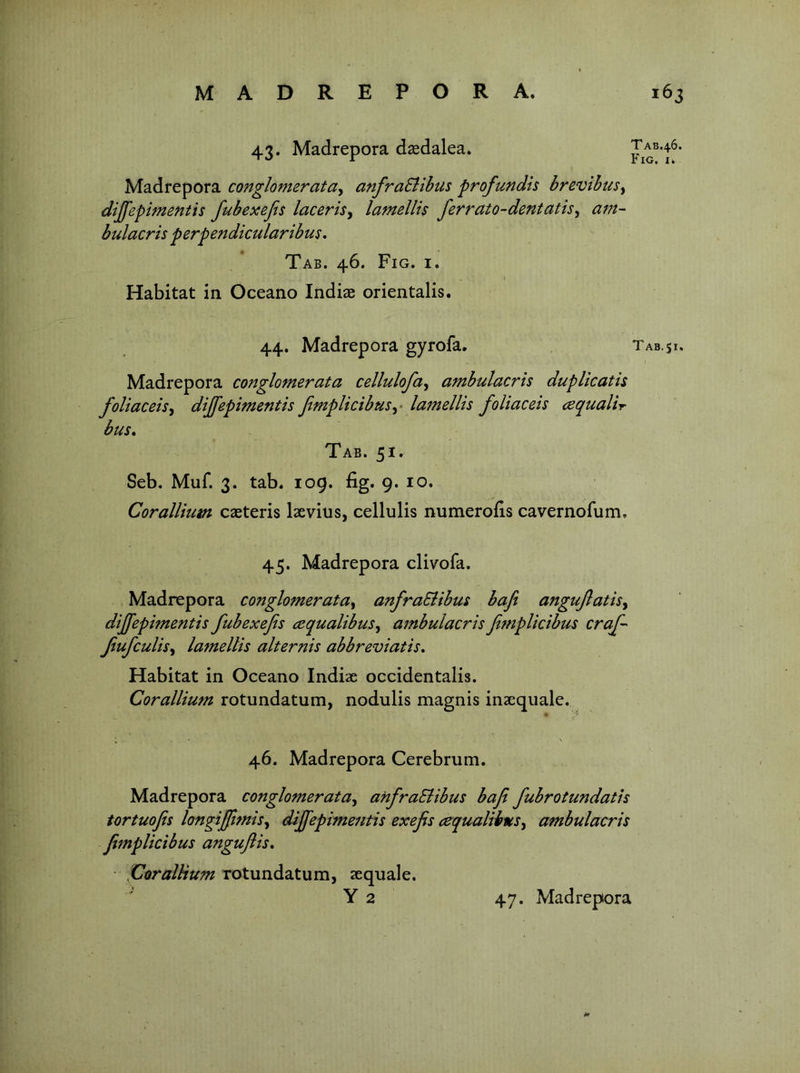 MADREPORA. 163
43. Madrepora dædalea. TAB.46. FIG. 1.
Madrepora conglomerata, anfractibus profundis brevibus,
dissepimentis subexesis laceris, lamellis serrato-dentatis, am-
bulacris perpendicularibus.
TAB. 46. FIG. 1.
Habitat in Oceano Indiæ orientalis.
44. Madrepora gyrosa. TAB.51.
Madrepora conglomerata cellulosa, ambulacris duplicatis
foliaceis, dissepimentis simplicibus, lamellis foliaceis æquali-
bus.
TAB. 51.
Seb. Mus. 3. tab. 109. fig. 9. 10.
Corallium cæteris lævius, cellulis numerosis cavernosum.
45. Madrepora clivosa.
Madrepora conglomerata, anfractibus basi angustatis,
dissepimentis subexesis æqualibus, ambulacris simplicibus cras-
siusculis, lamellis alternis abbreviatis.
Habitat in Oceano Indiæ occidentalis.
Corallium rotundatum, nodulis magnis inæquale.
46. Madrepora Cerebrum.
Madrepora conglomerata, anfractibus basi subrotundatis
tortuosis longissimis, dissepimentis exesis æqualibus, ambulacris
simplicibus angustis.
Corallium rotundatum, æquale.
Y 2 47. Madrepora